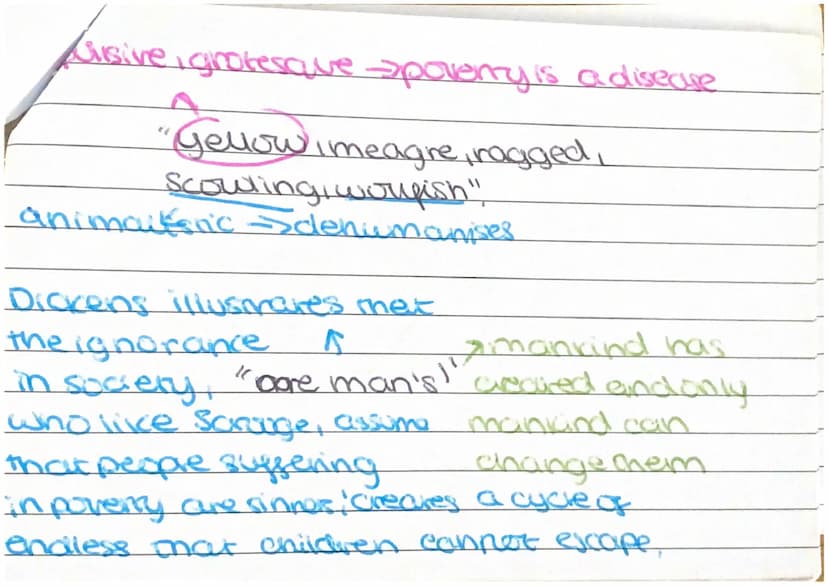 grotesque → poverty is a disease
"yellow, meagre, ragged,
scowling, wolfish",
→ dehumanises
Dickens illustrates that
the ignorance ↗ mankind has
in society, "are man's" created and only
who like Scrooge, assume mankind can
that people suffering change them
in poverty are sinners; creates a cycle of
endless that children cannot escape.